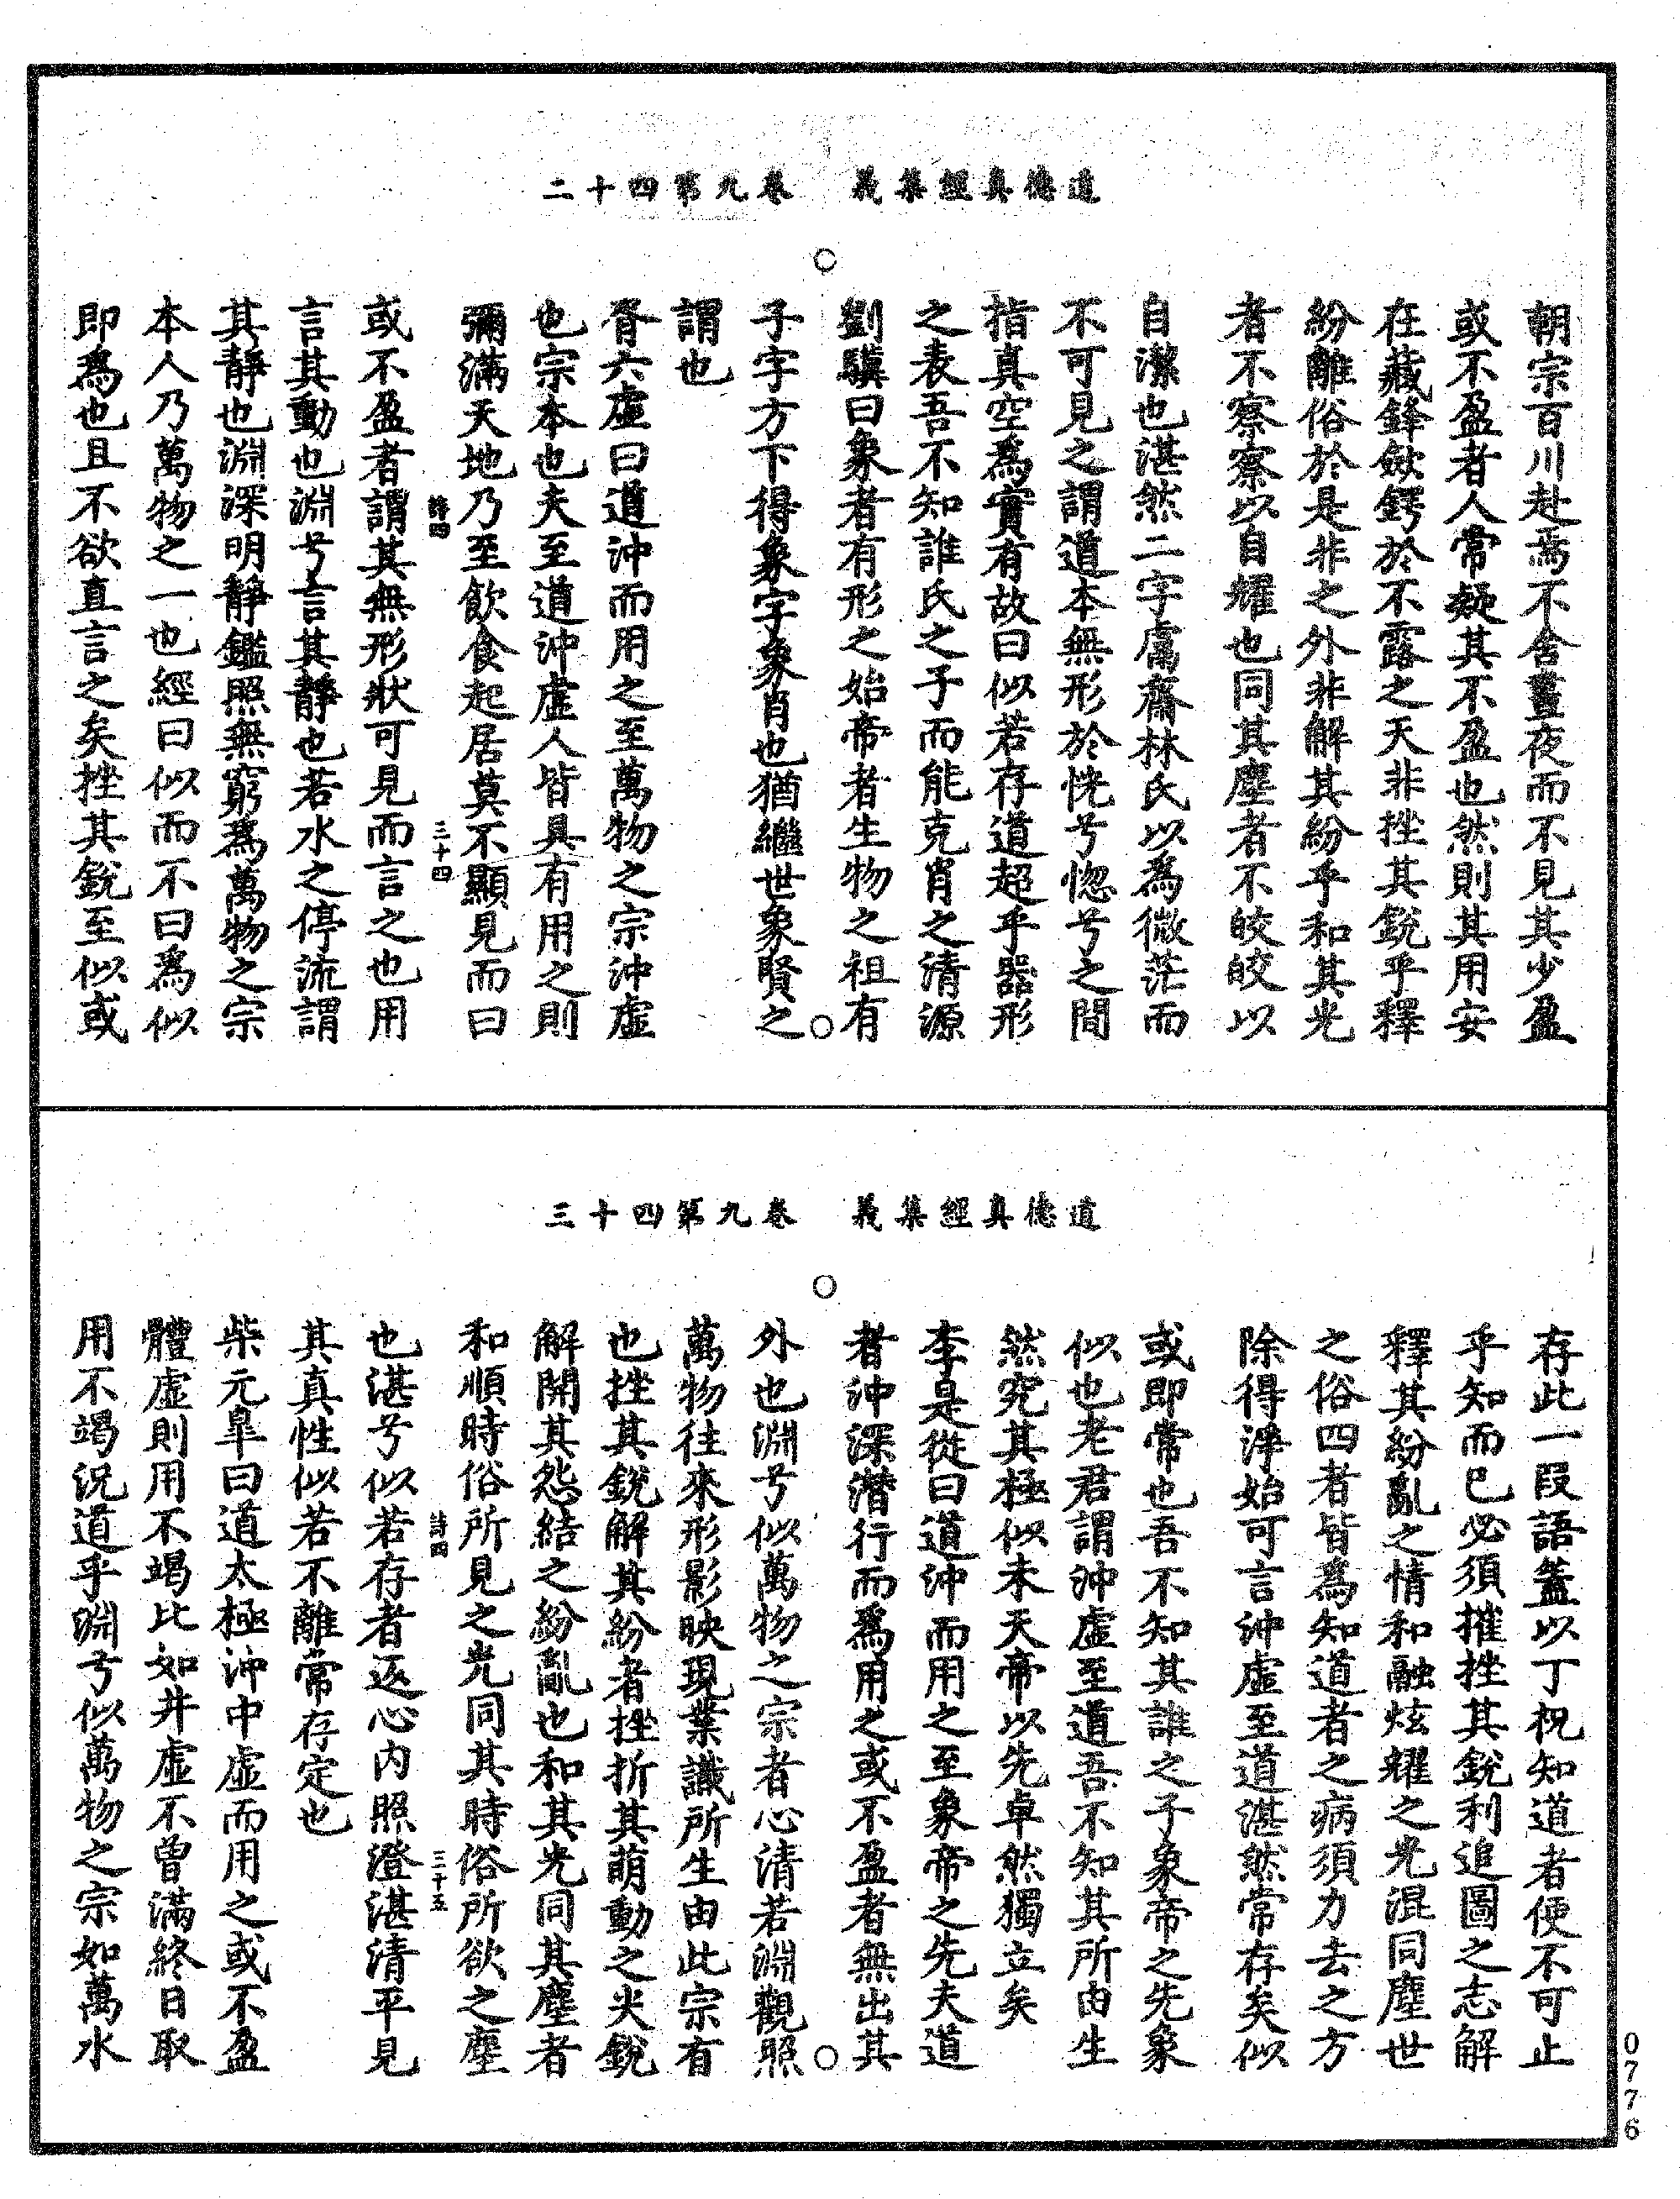 道德真經集義　卷九第四十二
朝宗百川赴焉不舍晝夜而不見其少盈
或不盈者人常疑其不盈也然則其用安
在藏鋒斂鍔於不露之天非挫其銳乎釋
紛離俗於是非之外非解其紛乎和其光
者不察察以自耀也同其塵者不皎皎以
自潔也湛然二字鬳齋林氏以為微茫而
不可見之謂道本無形於恍兮惚兮之間
指真空為實有故曰似若存道超乎器形
之表吾不知誰氏之子而能克肖之清源
劉驥曰象者有形之始帝者生物之祖有
子字方下得象字象肖也猶繼世象賢之
謂也
胥六虛曰道沖而用之至萬物之宗沖虛
也宗本也夫至道沖虛人皆具有用之則
彌滿天地乃至飲食起居莫不顯見而曰
詩四　三十四
或不盈者謂其無形狀可見而言之也用
言其動也淵兮言其靜也若水之停流謂
其靜也淵深明靜鑑照無窮為萬物之宗
本人乃萬物之一也經曰似而不曰為似
即為也且不欲直言之矣挫其銳至似或
道德真經集義　卷九第四十三
存此一段語蓋以丁祝知道者便不可止
乎知而已必須摧挫其銳利追圖之志解
釋其紛亂之情和融炫耀之光混同塵世
之俗四者皆為知道者之病須力去之方
除得淨始可言沖虛至道湛然常存矣似
或即常也吾不知其誰之子象帝之先象
似也老君謂沖虛至道吾不知其所由生
然究其極似未天帝以先卓然獨立矣
李是從曰道沖而用之至象帝之先夫道
者沖深潛行而為用之或不盈者無出其
外也淵兮似萬物之宗者心清若淵觀照
萬物往來形影映現業識所生由此宗有
也挫其銳解其紛者挫折其萌動之尖銳
解開其怨結之紛亂也和其光同其塵者
和順時俗所見之光同其時俗所欲之塵
詩四　三十五
也湛兮似若存者返心內照澄湛清平見
其真性似若不離常存定也
柴元皐曰道太極沖中虛而用之或不盈
體虛則用不竭比如井虛不曾滿終日取
用不竭況道乎淵兮似萬物之宗如萬水
0776